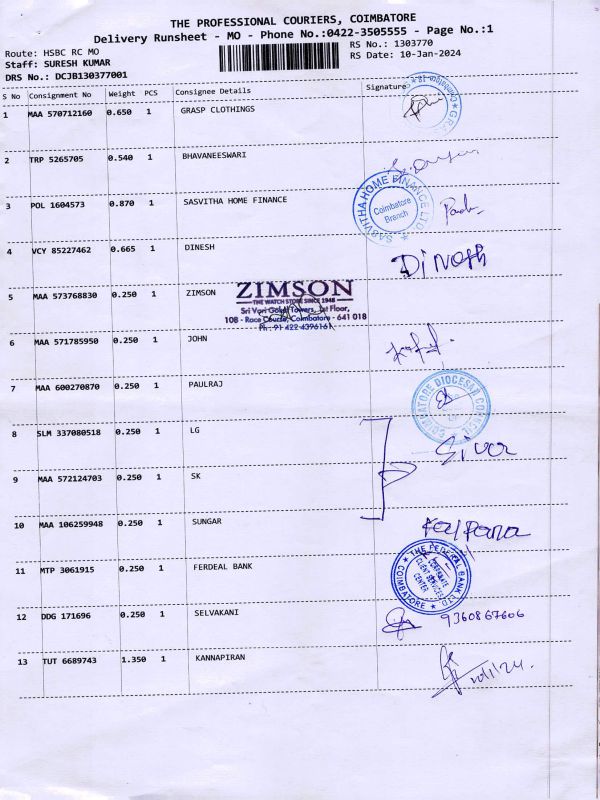 THE PROFESSIONAL COURIERS, COIMBATORE
Delivery Runsheet - MO - Phone No.:0422-3505555 - Page No.:1
Route: HSBC RC MO
RS No.: 1303770
Staff: SURESH KUMAR
RS Date: 10-Jan-2024
DRS No.: DCJB130377001
S No Consignment No Weight PCS Consignee Details Signature
1 MAA 570712160 0.650 1 GRASP CLOTHINGS
2 TRP 5265705 0.540 1 BHAVANEESWARI
3 POL 1604573 0.870 1 SASVITHA HOME FINANCE
SASVITHA HOME FINANCE LTD
Coimbatore
Branch
4 VCY 85227462 0.665 1 DINESH
DiNesh
5 MAA 573768830 0.250 1 ZIMSON
ZIMSON
THE WATCH STORE SINCE 1948
Sri Vari Gokul Towers, 1st Floor,
108 - Race Course, Coimbatore - 641 018
Ph : 91-422-4396161
6 MAA 571785950 0.250 1 JOHN
7 MAA 600270870 0.250 1 PAULRAJ
COIMBATORE DIOCESAN COUNCIL
8 SLM 337080518 0.250 1 LG
Siva
9 MAA 572124703 0.250 1 SK
10 MAA 106259948 0.250 1 SUNGAR
Kalpana
11 MTP 3061915 0.250 1 FERDEAL BANK
THE FEDERAL BANK LTD
CORPORATE
CLIENT SERVICES
CENTER
COIMBATORE
12 DDG 171696 0.250 1 SELVAKANI
9360867606
13 TUT 6689743 1.350 1 KANNAPIRAN
10/1/24.